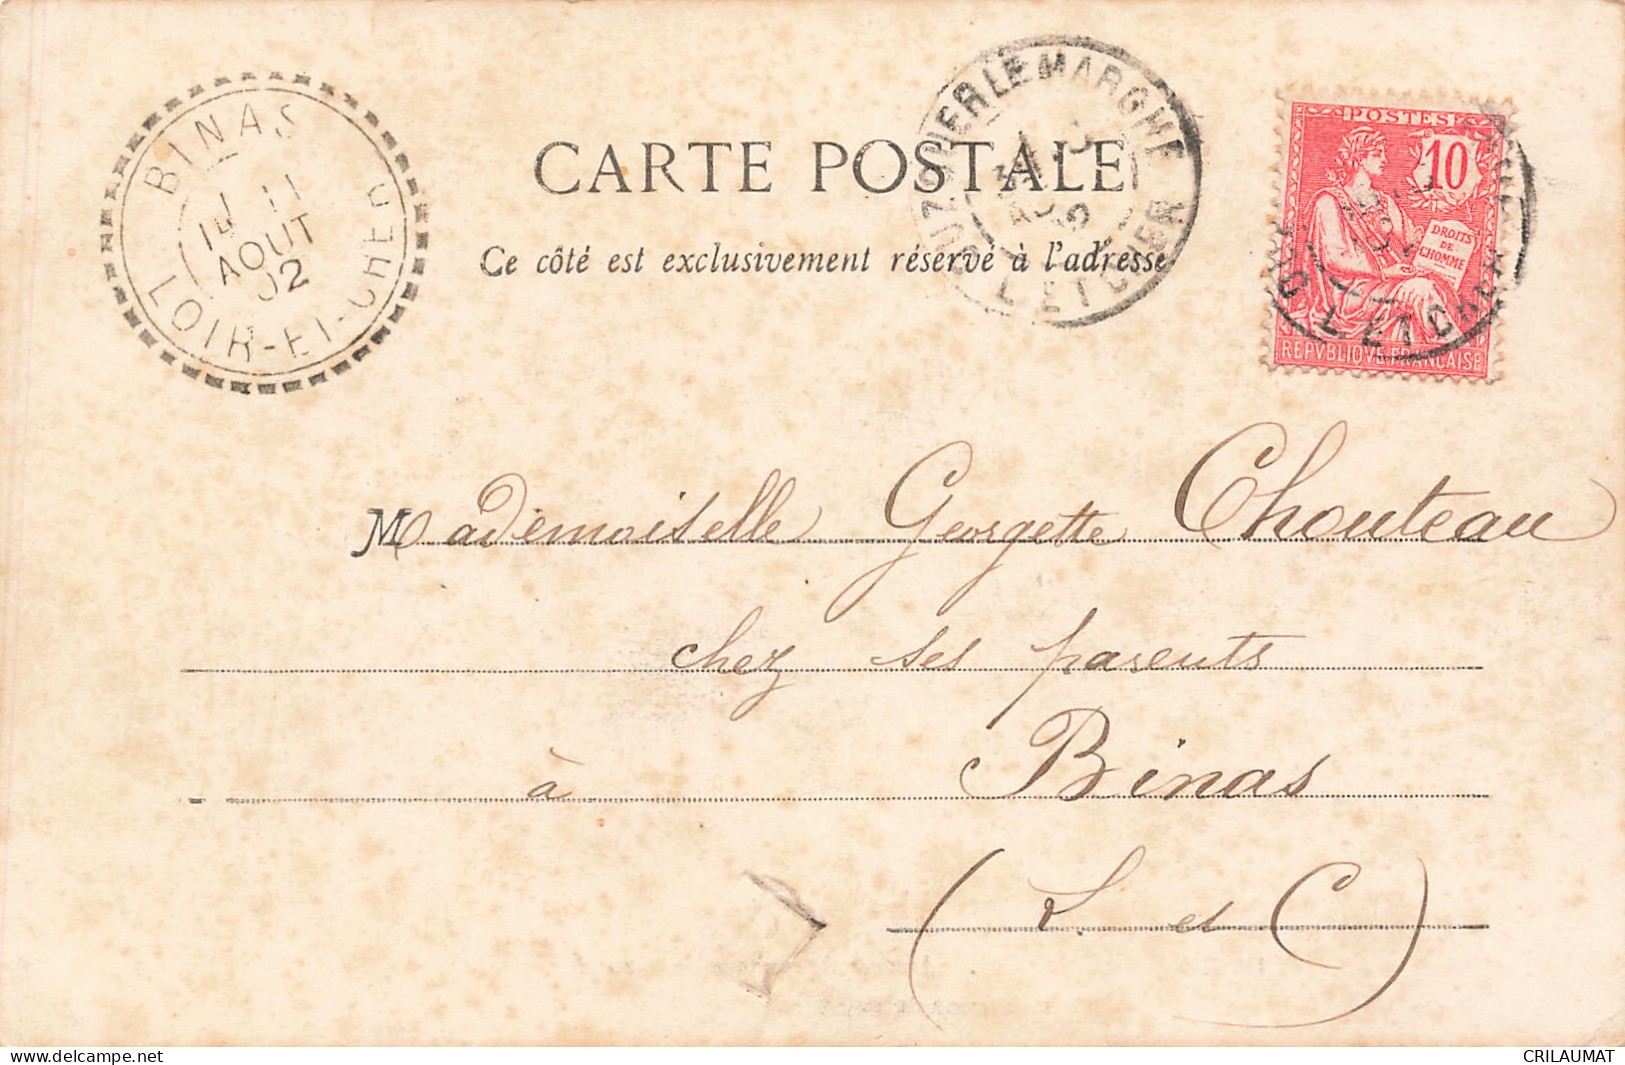 BINAS
11
14
AOUT
02
LOIR-ET-CHER
CARTE POSTALE
Ce côté est exclusivement réservé à l'adresse
OUZOUER LE MARCHE
L. ET CHER
POSTES
10
DROITS
DE
L'HOMME
REPVBLIQVE FRANÇAISE
L. ET CHER
Mademoiselle Georgette Chouteau
chez ses parents
à Binas
(L. et C)
CRILAUMAT